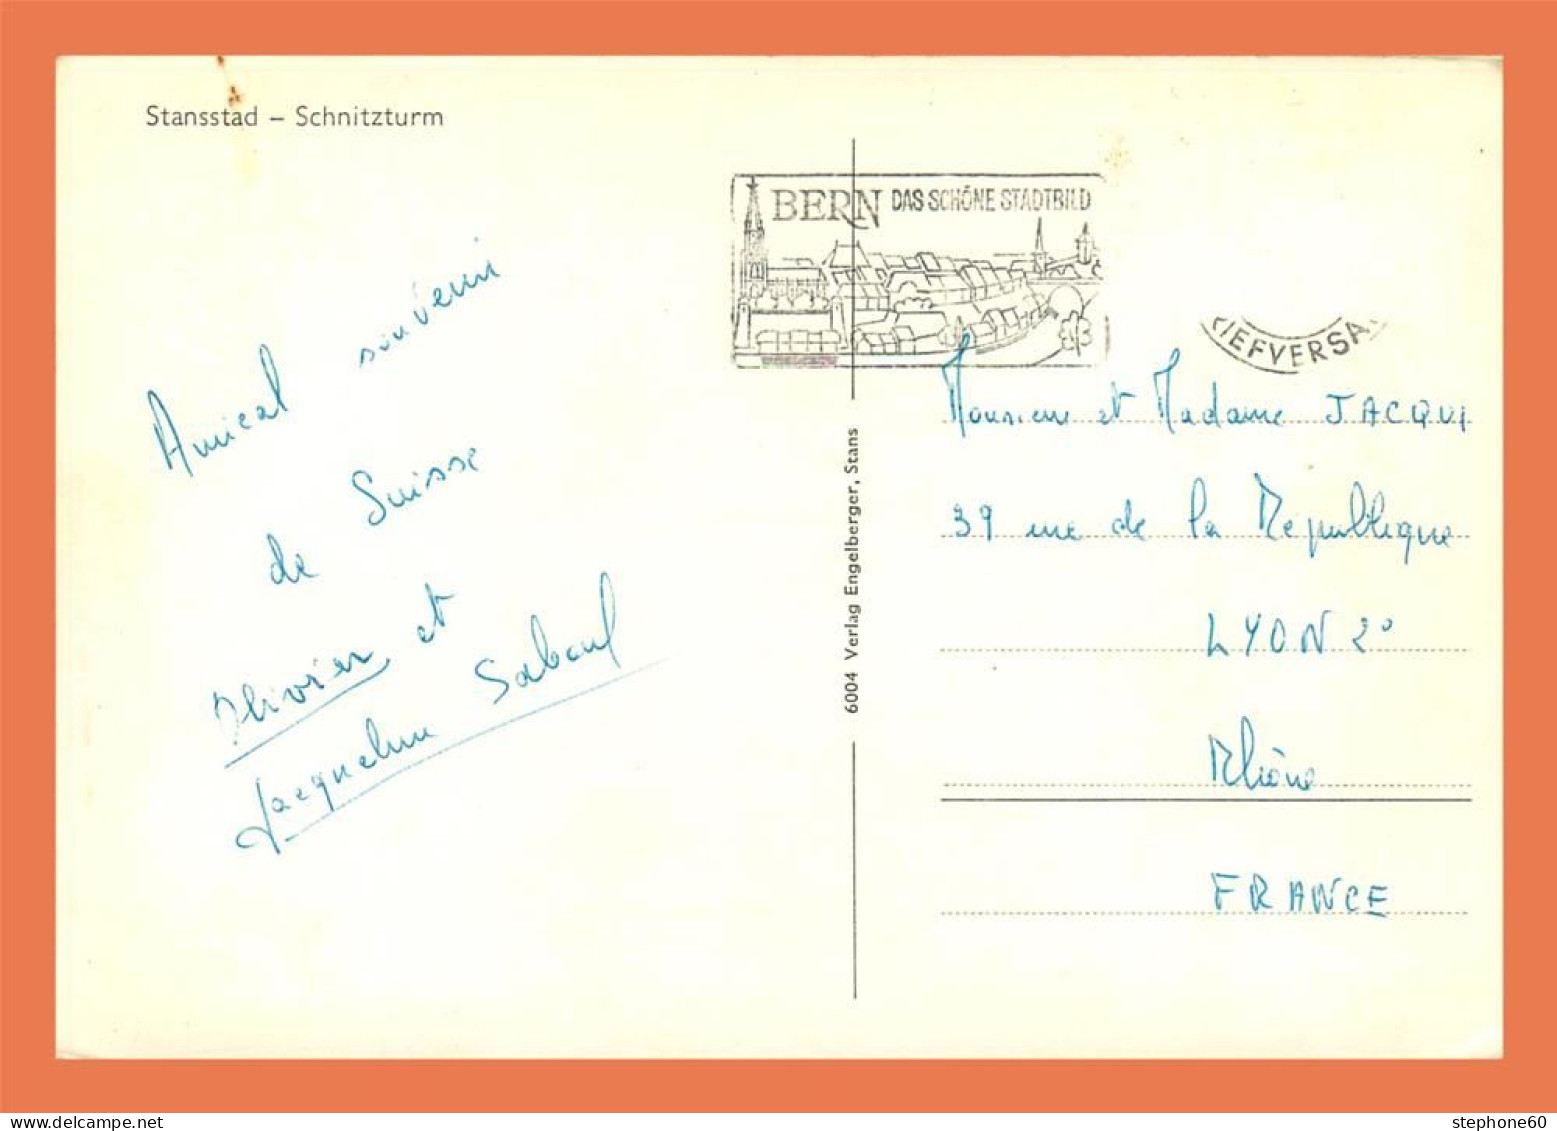 Stansstad – Schnitzturm
BERN DAS SCHÖNE STADTBILD
RIEFVERSA
Amical souvenir
de Suisse
Olivier et
Jacqueline
6004 Verlag Engelberger, Stans
Monsieur et Madame JACQUI
39 rue de la République
LYON 2°
Rhône
FRANCE
stephone60